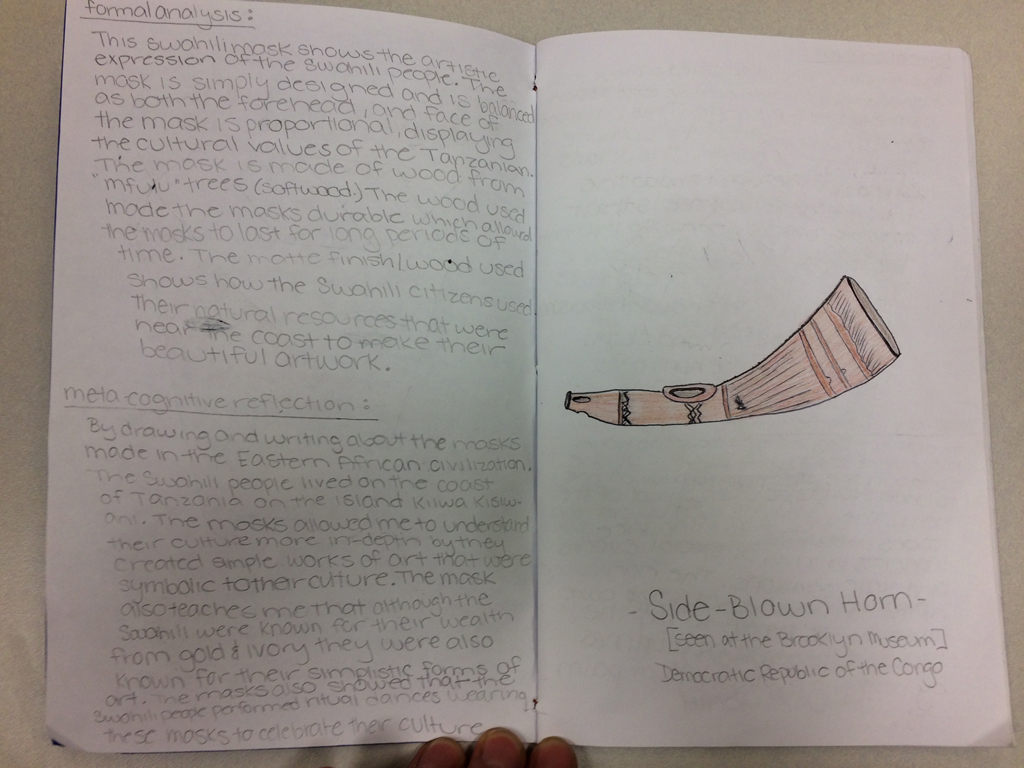 formal analysis:
This swahili mask shows the artistic
expression of the swahili people. The
mask is simply designed and is balanced
as both the forehead, and face of
the mask is proportional, displaying
the cultural values of the Tanzanian.
The mask is made of wood from
"mfuju" trees (softwood.) The wood used
made the masks durable which allowed
the masks to last for long periods of
time. The matte finish/wood used
shows how the Swahili citizens used
their natural resources that were
near the coast to make their
beautiful artwork.
meta-cognitive reflection:
By drawing and writing about the masks
made in the Eastern African civilization.
The Swahili people lived on the coast
of Tanzania on the island Kilwa Kisiw-
ani. The masks allowed me to understand
their culture more in-depth by they
created simple works of art that were
symbolic to their culture. The mask
also teaches me that although the
Swahili were known for their wealth
from gold & ivory they were also
known for their simplistic forms of
art. The masks also showed that the
Swahili people performed ritual dances wearing
these masks to celebrate their culture
- Side-Blown Horn -
[seen at the Brooklyn Museum]
Democratic Republic of the Congo